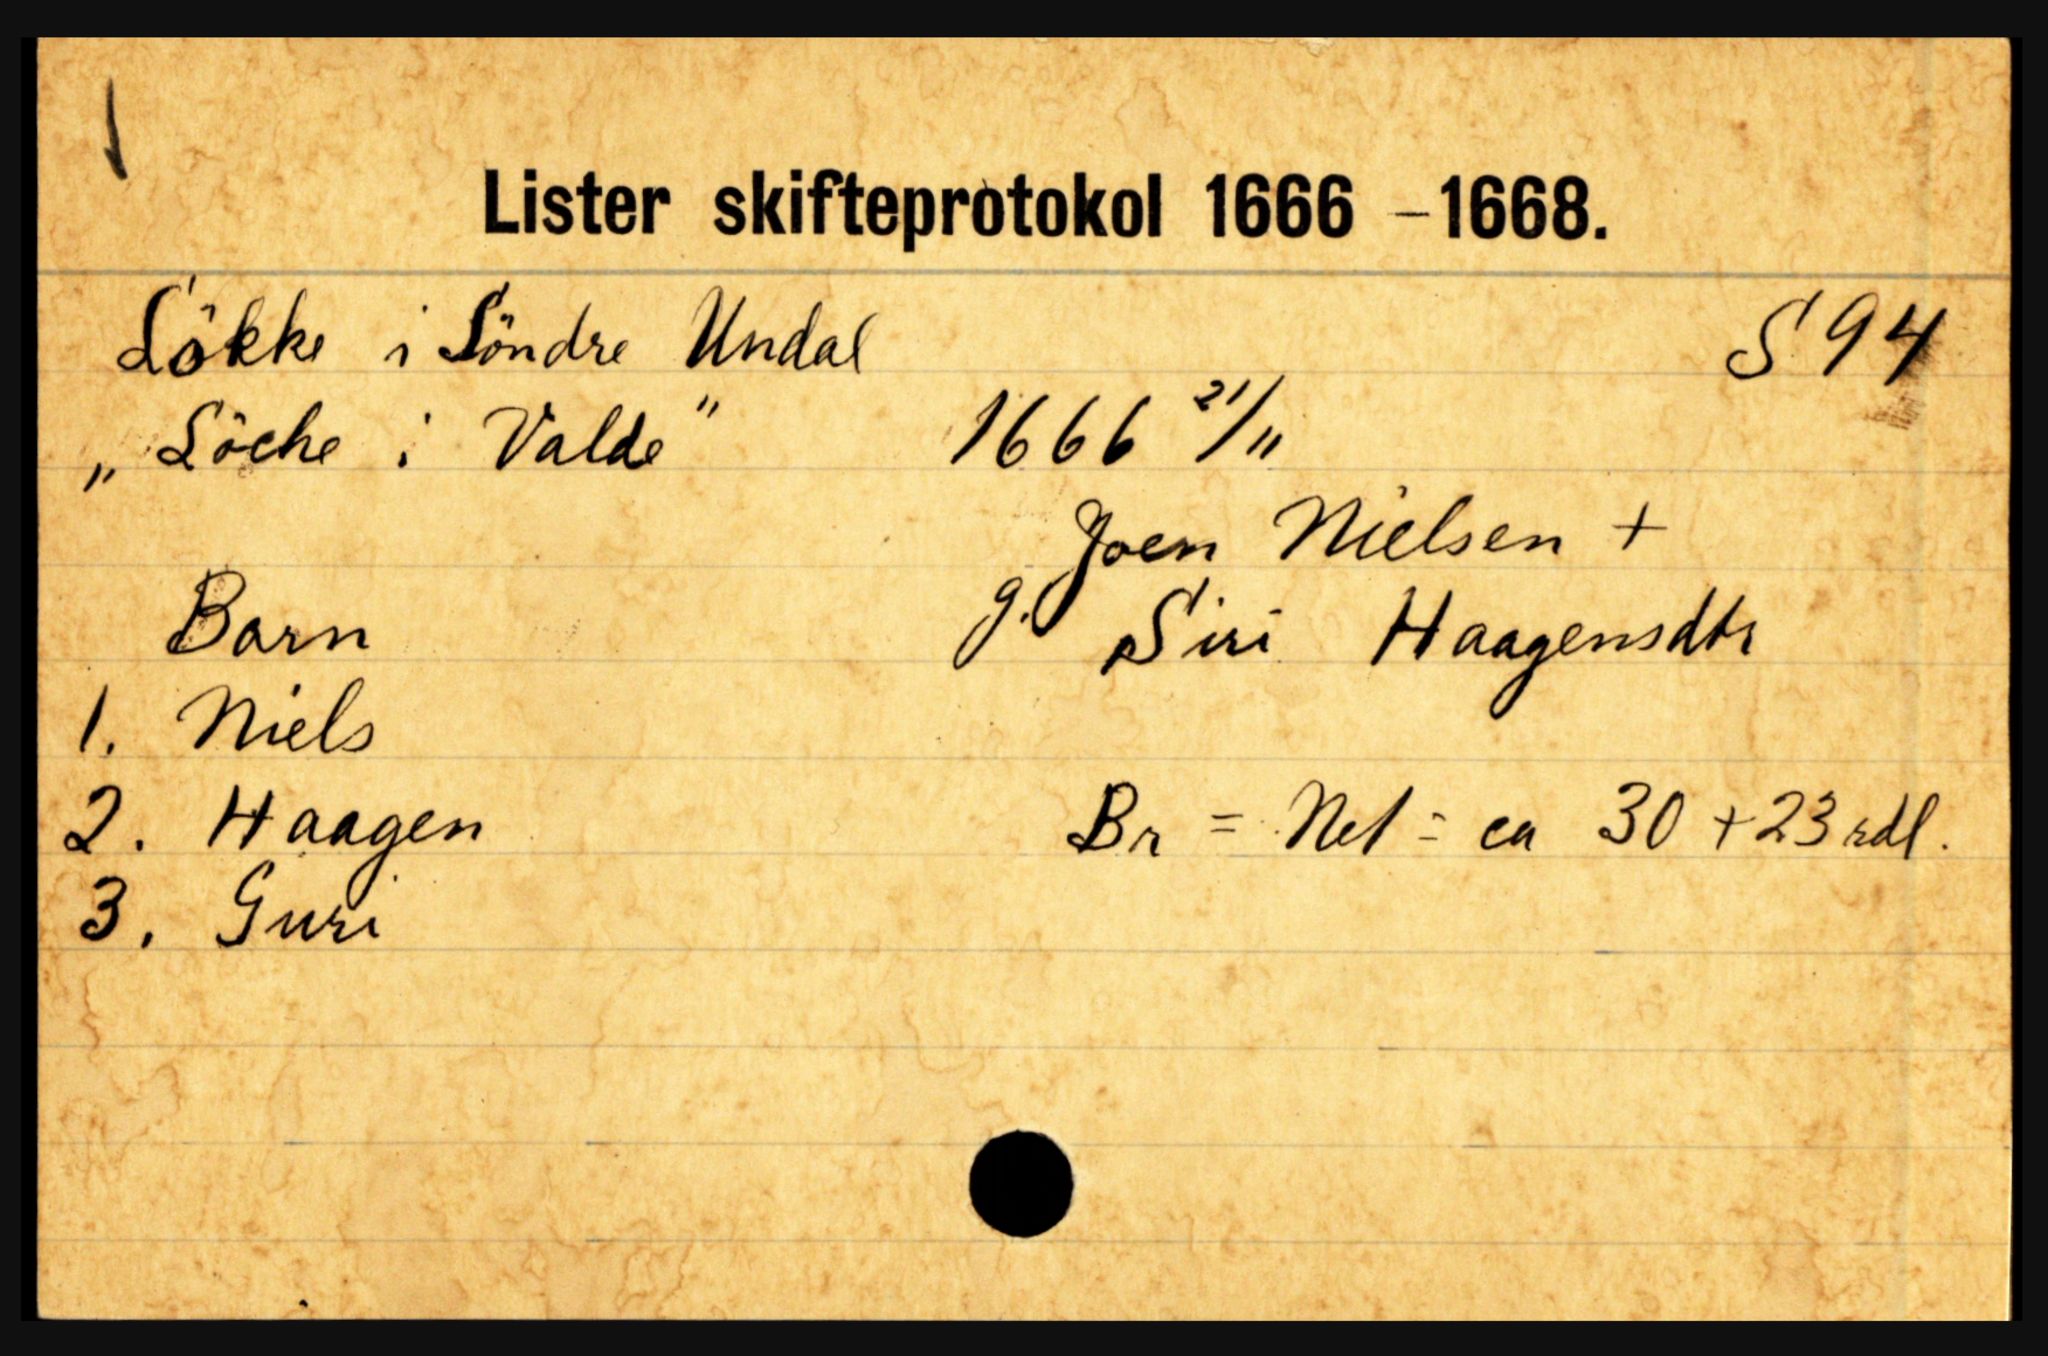 Lister skifteprotokol 1666 – 1668.
Lökke i Söndre Undal S 94
„Löche i Valde" 1666 21/11
Joen Nielsen +
Barn g. Siri Haagensdtr
1. Niels
2. Haagen Br = Net = ca 30 + 23 rdl.
3. Guri